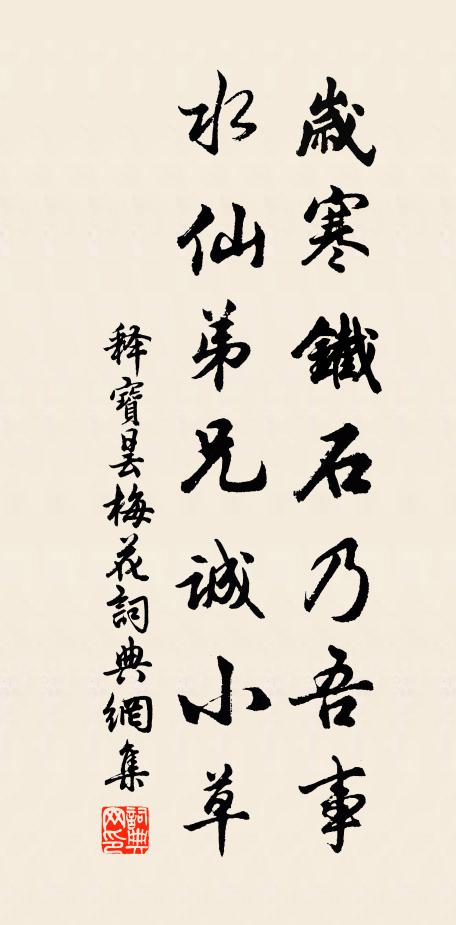 歲寒鐵石乃吾事
水仙弟兄誠小草
释寶曇梅花詞典網集
詞典网印